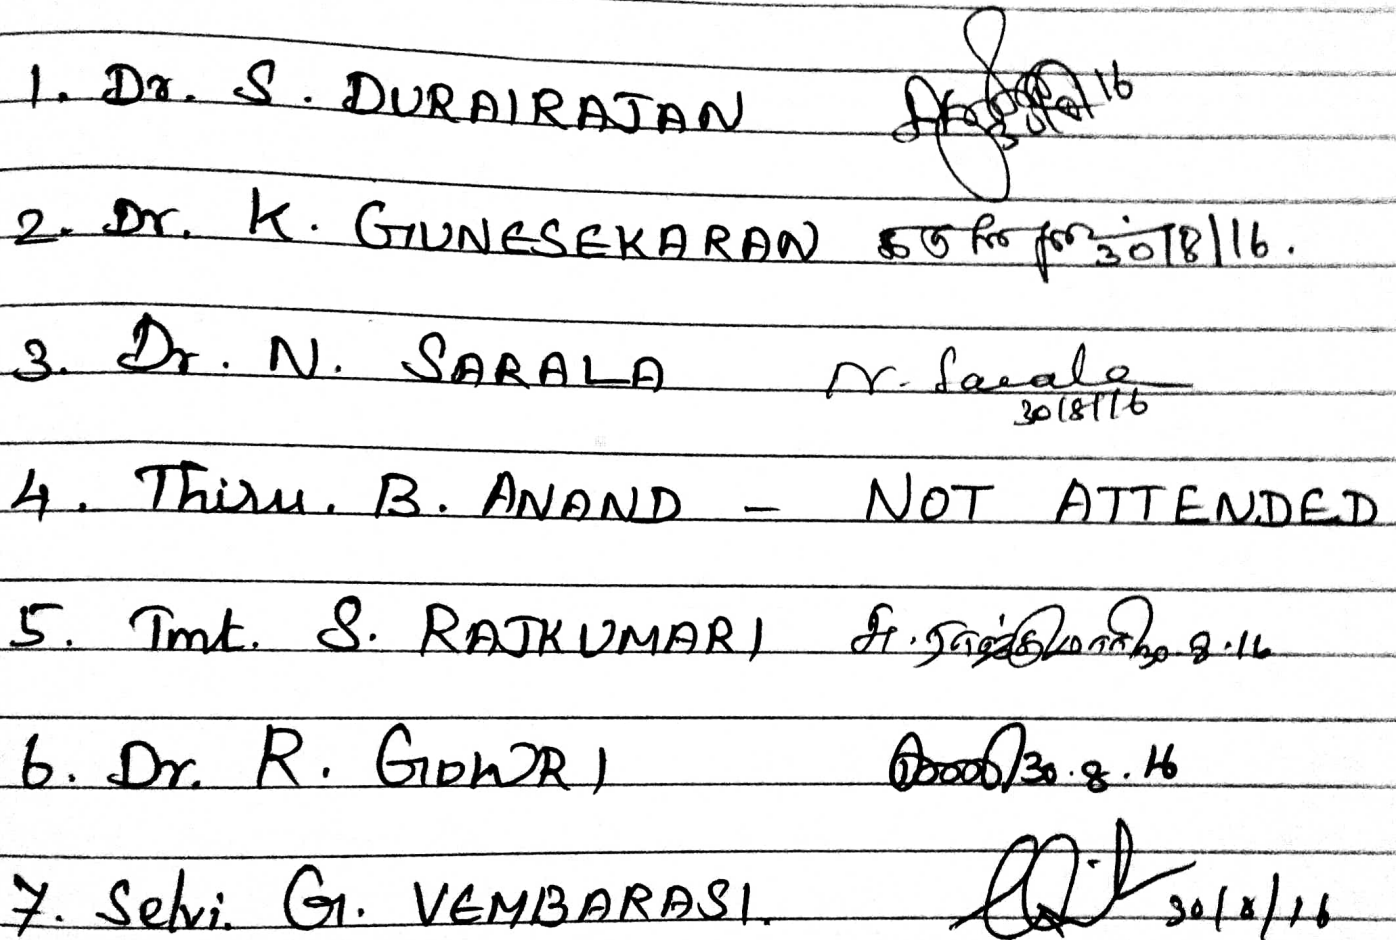 1. Dr. S. DURAIRAJAN 16
2. Dr. K. GUNESEKARAN 30/8/16.
3. Dr. N. SARALA N. Sarala
30/8/16
4. Thiru. B. ANAND - NOT ATTENDED
5. Tmt. S. RAJKUMARI 30.8.16
6. Dr. R. GOWRI 30.8.16
7. Selvi. G. VEMBARASI. 30/8/16